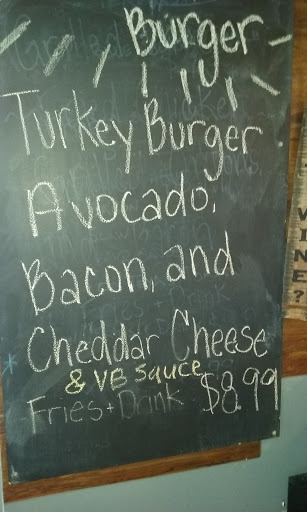 Burger
Turkey Burger
Avocado,
Bacon, and
Cheddar Cheese
& VB Sauce
Fries + Drink $8.99
WINE?